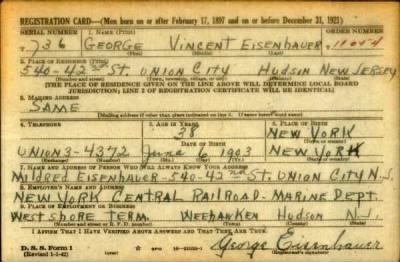 REGISTRATION CARD—(Men born on or after February 17, 1897 and on or before December 31, 1921)
SERIAL NUMBER 1. NAME (Print) ORDER NUMBER
736 GEORGE VINCENT EISENHAUER
(First) (Middle) (Last)
2. PLACE OF RESIDENCE (Print)
540-42nd ST. UNION CITY HUDSON NEW JERSEY
(Number and street) (Town, township, village, or city) (County) (State)
[THE PLACE OF RESIDENCE GIVEN ON THE LINE ABOVE WILL DETERMINE LOCAL BOARD
JURISDICTION; LINE 2 OF REGISTRATION CERTIFICATE WILL BE IDENTICAL]
3. MAILING ADDRESS
SAME
[Mailing address if other than place indicated on line 2. If same insert word same]
4. TELEPHONE 5. AGE IN YEARS 6. PLACE OF BIRTH
38 NEW YORK
DATE OF BIRTH (Town or county)
UNION 3-4372 June 1903 NEW YORK
7. NAME AND ADDRESS OF PERSON WHO WILL ALWAYS KNOW YOUR ADDRESS
MILDRED EISENHAUER-540-42nd ST. UNION CITY N.J.
8. EMPLOYER'S NAME AND ADDRESS
NEW YORK CENTRAL RAILROAD-MARINE DEPT.
9. PLACE OF EMPLOYMENT OR BUSINESS
WEST SHORE TERM. WEEHAWKEN HUDSON N.J.
(Number and street or R. F. D. number) (Town) (County) (State)
I AFFIRM THAT I HAVE VERIFIED ABOVE ANSWERS AND THAT THEY ARE TRUE.
D. S. S. Form 1
(Revised 1-1-42)
George Eisenhauer
(Registrant's signature)